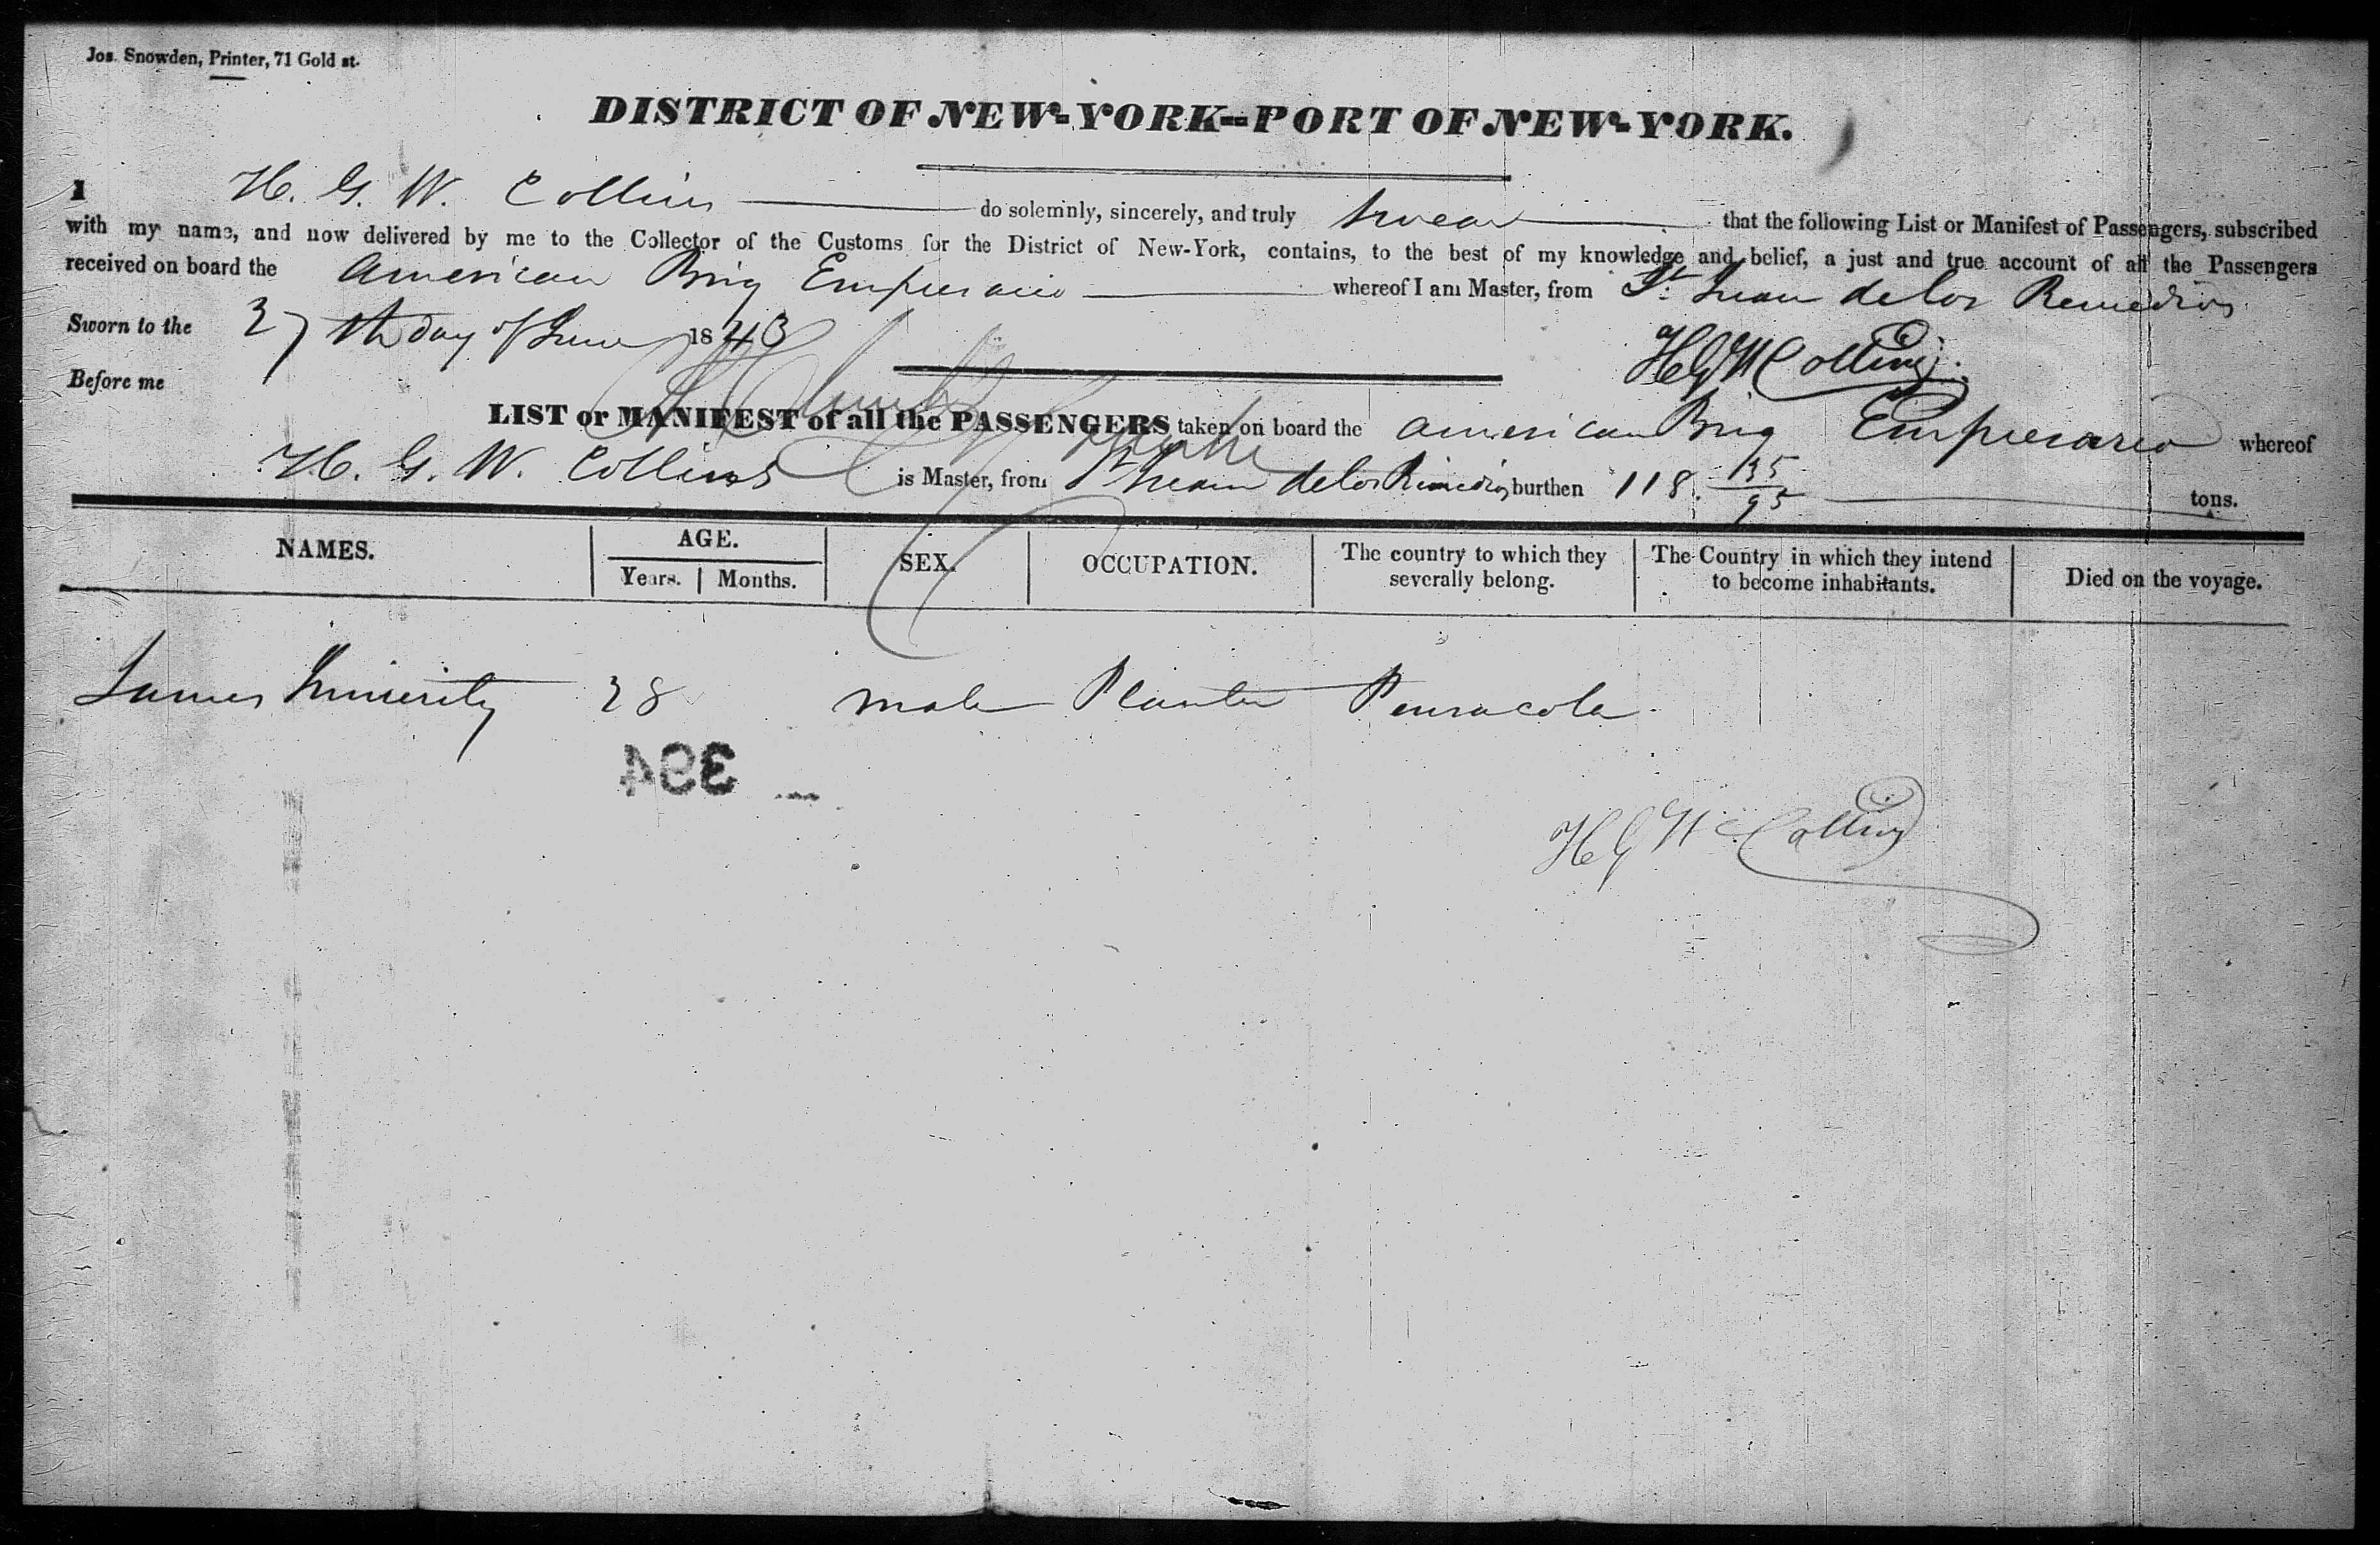 Jos. Snowden, Printer, 71 Gold st.
DISTRICT OF NEW-YORK--PORT OF NEW-YORK.
I H. G. W. Collins do solemnly, sincerely, and truly swear that the following List or Manifest of Passengers, subscribed
with my name, and now delivered by me to the Collector of the Customs for the District of New-York, contains, to the best of my knowledge and belief, a just and true account of all the Passengers
received on board the American Brig Empresario whereof I am Master, from St. Juan de los Remedios
Sworn to the 27th day of June 1843
H G W Collins
Before me
LIST or MANIFEST of all the PASSENGERS taken on board the American Brig Empresario whereof
H. G. W. Collins is Master, from St Juan de los Remedios burthen 118. 35/95 tons.
NAMES. AGE. SEX. OCCUPATION. The country to which they severally belong. The Country in which they intend to become inhabitants. Died on the voyage.
Years. Months.
James 28 male Planter Pensacola.
394
H G W Collins